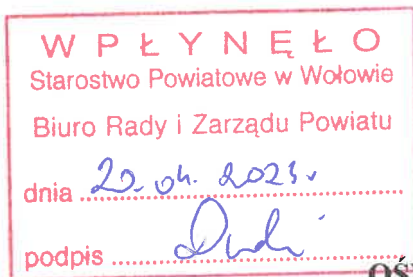 WPŁYNĘŁO
Starostwo Powiatowe w Wołowie
Biuro Rady i Zarządu Powiatu
dnia 20.04.2023r
podpis
OŚ